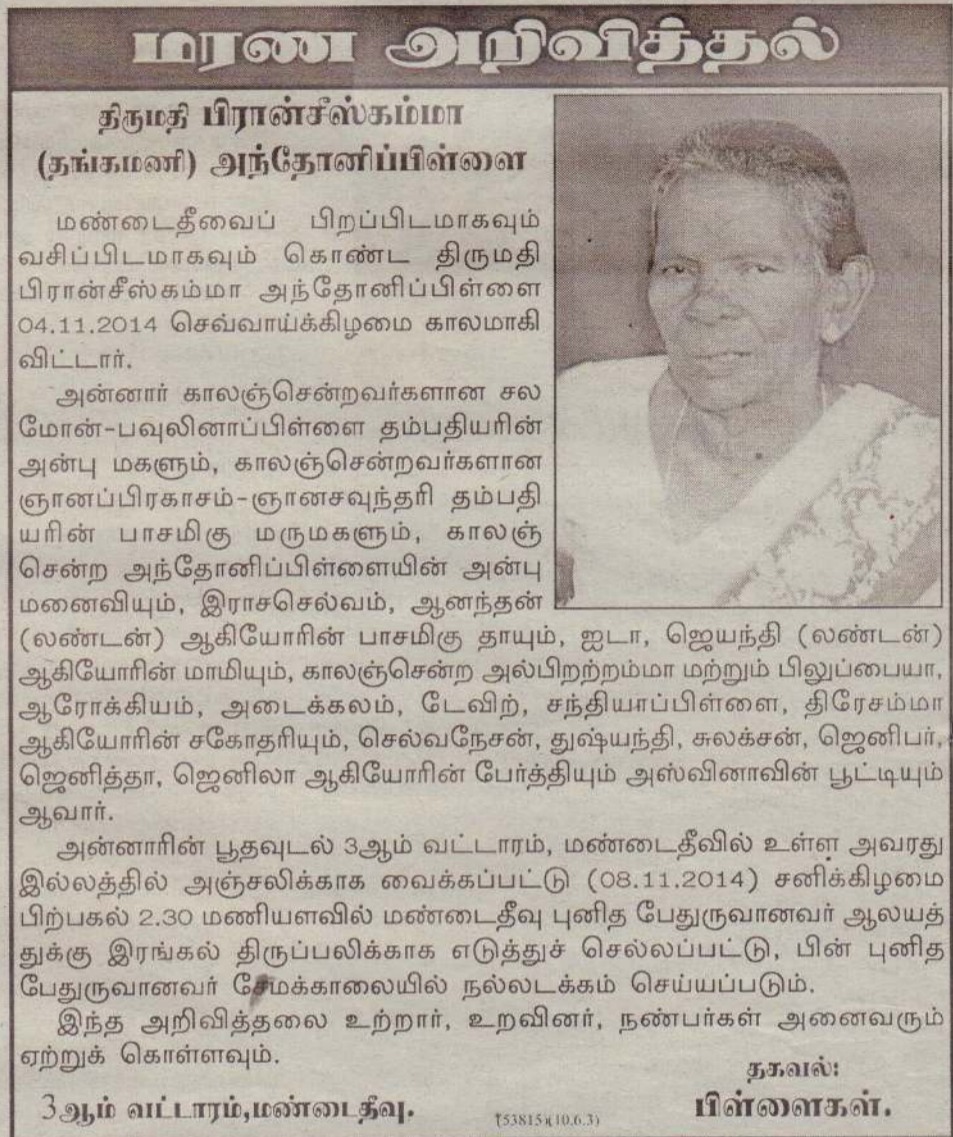 மரண அறிவித்தல்
திருமதி பிரான்சீஸ்கம்மா
(தங்கமணி) அந்தோனிப்பிள்ளை
மண்டைதீவைப் பிறப்பிடமாகவும்
வசிப்பிடமாகவும் கொண்ட திருமதி
பிரான்சீஸ்கம்மா அந்தோனிப்பிள்ளை
04.11.2014 செவ்வாய்க்கிழமை காலமாகி
விட்டார்.
அன்னார் காலஞ்சென்றவர்களான சல
மோன்-பவுலினாப்பிள்ளை தம்பதியரின்
அன்பு மகளும், காலஞ்சென்றவர்களான
ஞானப்பிரகாசம்-ஞானசவுந்தரி தம்பதி
யரின் பாசமிகு மருமகளும், காலஞ்
சென்ற அந்தோனிப்பிள்ளையின் அன்பு
மனைவியும், இராசசெல்வம், ஆனந்தன்
(லண்டன்) ஆகியோரின் பாசமிகு தாயும், ஐடா, ஜெயந்தி (லண்டன்)
ஆகியோரின் மாமியும், காலஞ்சென்ற அல்பிறற்றம்மா மற்றும் பிலுப்பையா,
ஆரோக்கியம், அடைக்கலம், டேவிற், சந்தியாப்பிள்ளை, திரேசம்மா
ஆகியோரின் சகோதரியும், செல்வநேசன், துஷ்யந்தி, சுலக்சன், ஜெனிபர்,
ஜெனித்தா, ஜெனிலா ஆகியோரின் பேர்த்தியும் அஸ்வினாவின் பூட்டியும்
ஆவார்.
அன்னாரின் பூதவுடல் 3ஆம் வட்டாரம், மண்டைதீவில் உள்ள அவரது
இல்லத்தில் அஞ்சலிக்காக வைக்கப்பட்டு (08.11.2014) சனிக்கிழமை
பிற்பகல் 2.30 மணியளவில் மண்டைதீவு புனித பேதுருவானவர் ஆலயத்
துக்கு இரங்கல் திருப்பலிக்காக எடுத்துச் செல்லப்பட்டு, பின் புனித
பேதுருவானவர் சேமக்காலையில் நல்லடக்கம் செய்யப்படும்.
இந்த அறிவித்தலை உற்றார், உறவினர், நண்பர்கள் அனைவரும்
ஏற்றுக் கொள்ளவும்.
தகவல்:
3ஆம் வட்டாரம்,மண்டைதீவு.
பிள்ளைகள்.